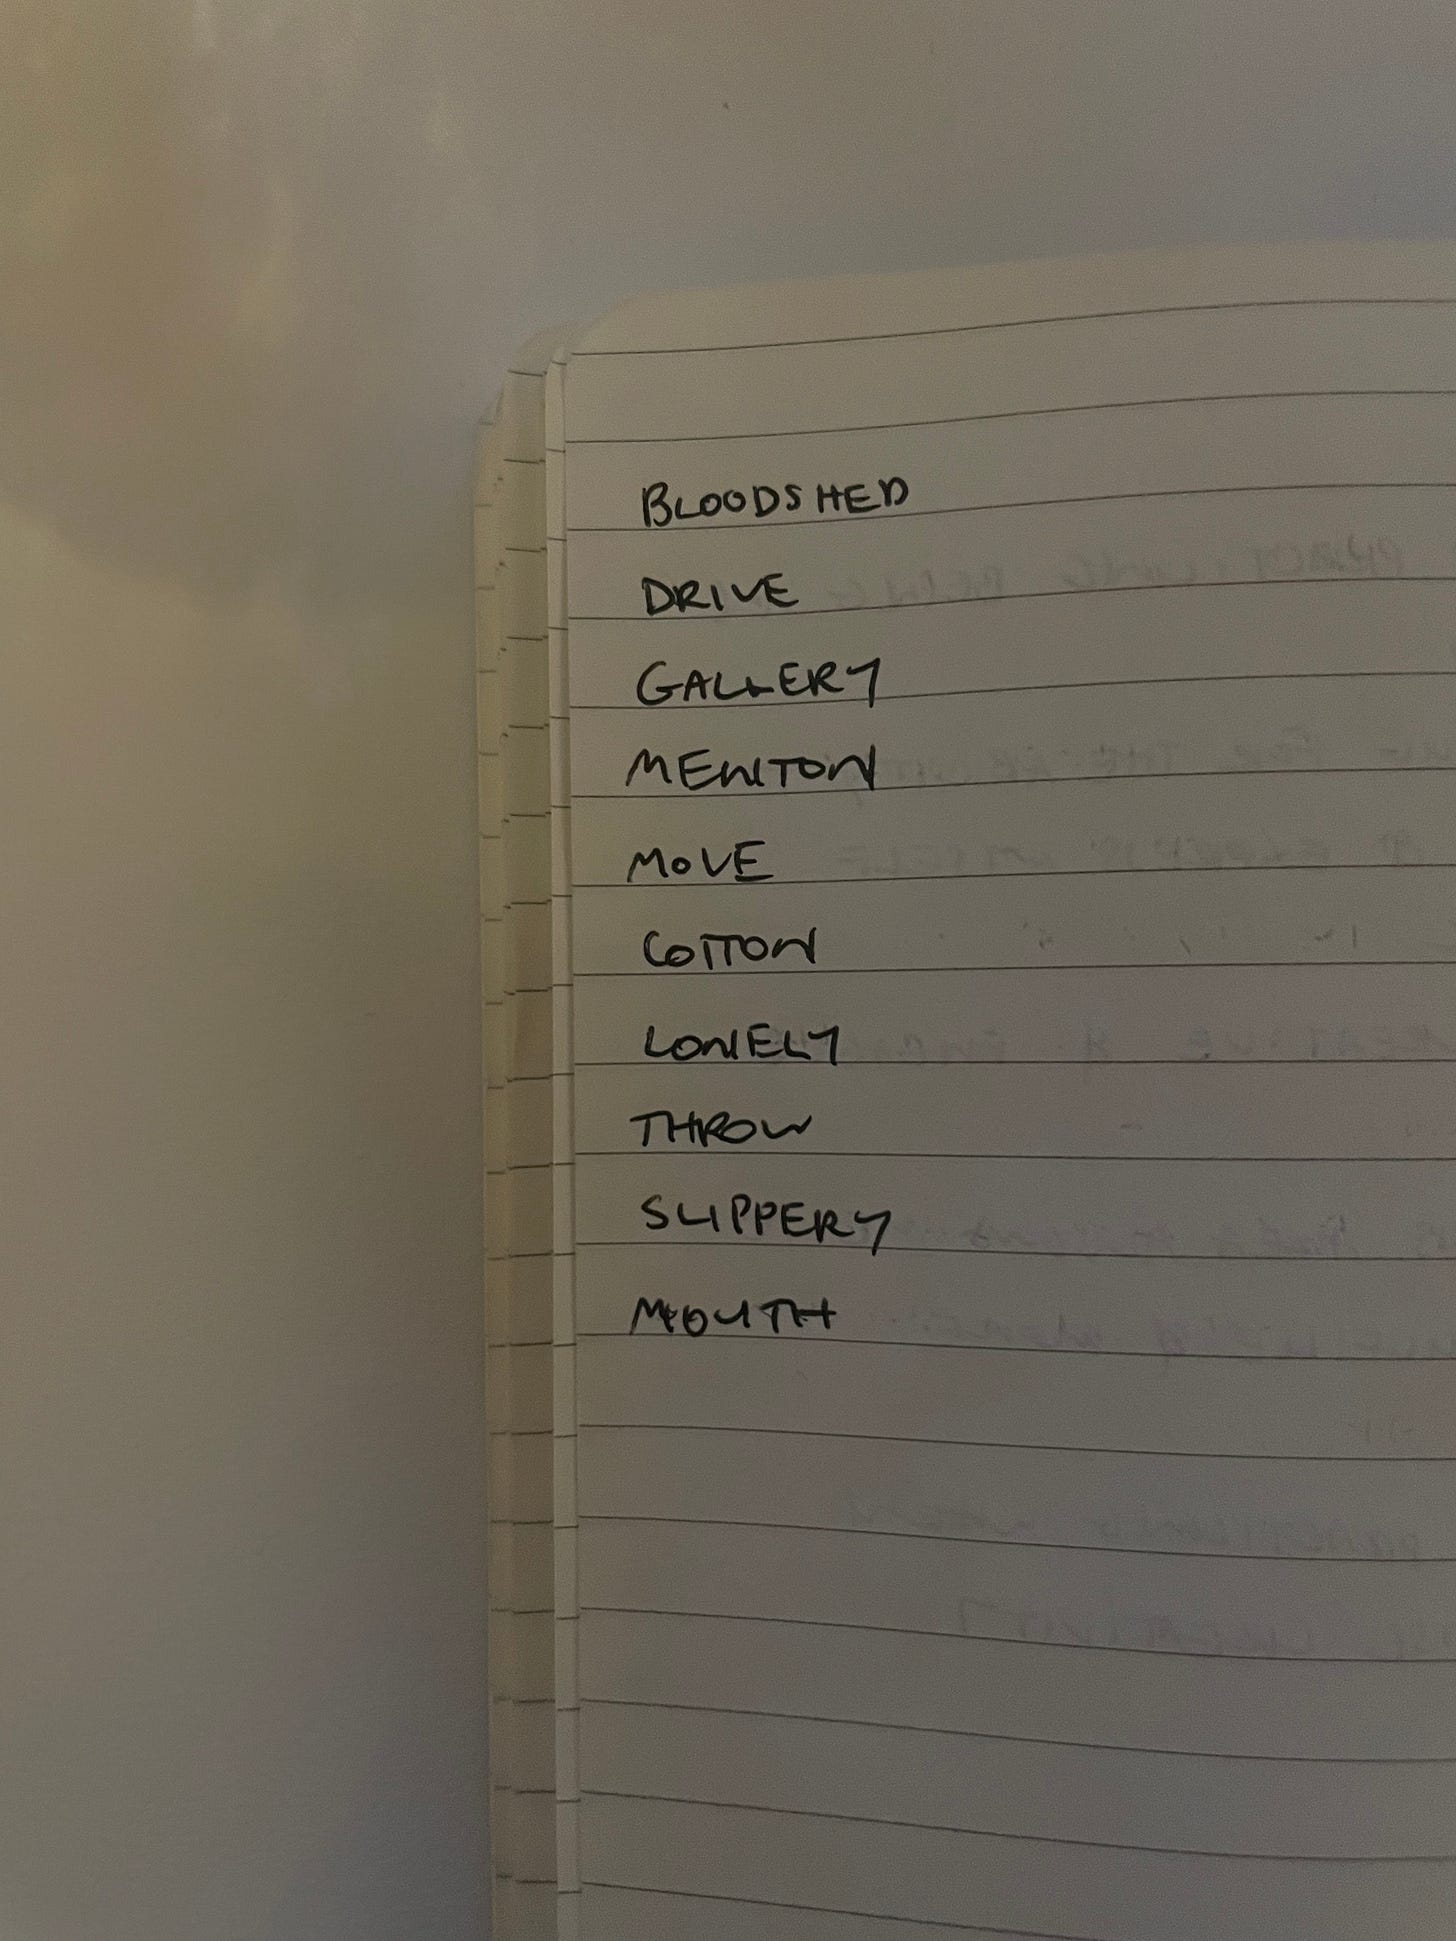 BLOODSHED
DRIVE
GALLERY
MENITON
MOVE
COTTON
LONELY
THROW
SLIPPERY
MOUTH